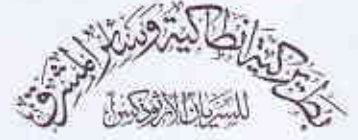 بطريركية انطاكية وسائر المشرق
للسريان الارثوذكس